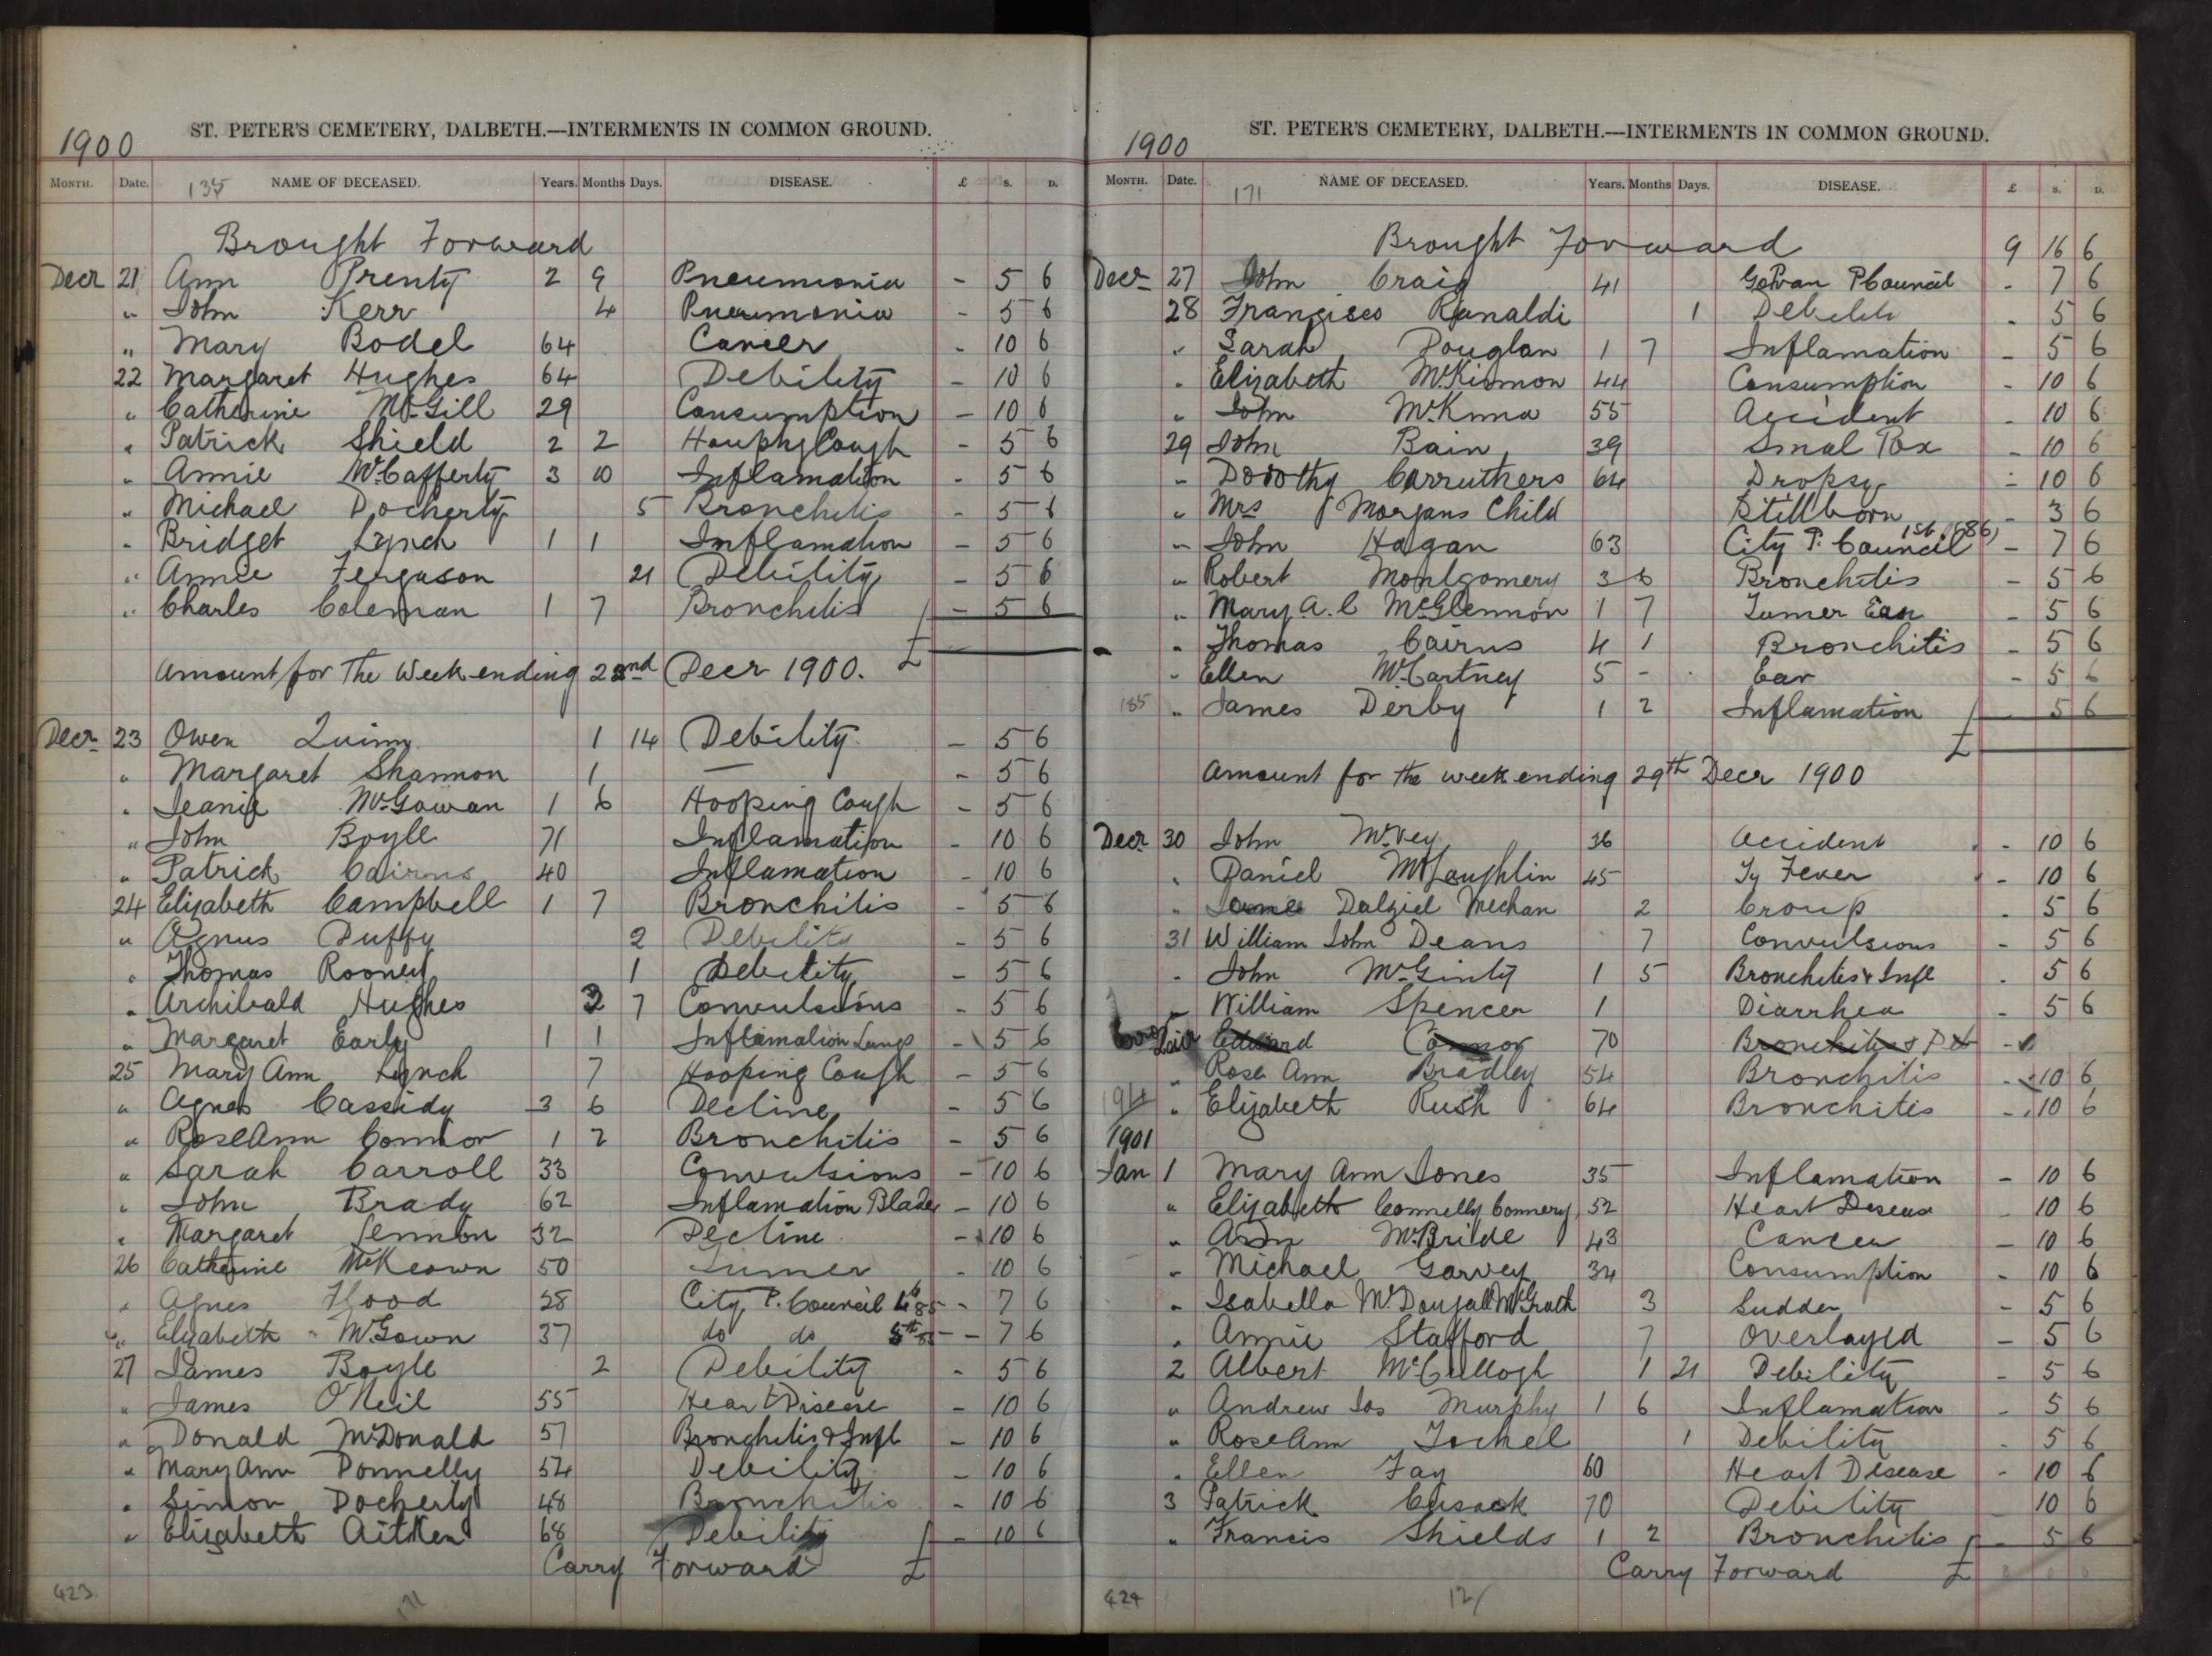 1900
ST. PETER'S CEMETERY, DALBETH.—INTERMENTS IN COMMON GROUND.
MONTH. Date. 135 NAME OF DECEASED. Years. Months Days. DISEASE. £ s. D.
Brought Forward
Decr 21 Ann Prenty 2 9 Pneumonia - 5 6
" John Kerr 4 Pneumonia - 5 6
" Mary Bodel 64 Cancer - 10 6
22 Margaret Hughes 64 Debility - 10 6
" Catherine McGill 29 Consumption - 10 6
" Patrick Shield 2 2 Houphg Cough - 5 6
" Annie McCafferty 3 10 Inflamation - 5 6
" Michael Docherty 5 Bronchitis - 5 6
" Bridget Lynch 1 1 Inflamation - 5 6
" Annie Ferguson 21 Debility - 5 6
" Charles Coleman 1 7 Bronchitis - 5 6
£
Amount for The Week ending 22nd Decr 1900.
Decr 23 Owen Quinn 1 14 Debility - 5 6
" Margaret Shannon 1 — - 5 6
" Jeanie McGowan 1 6 Hooping Cough - 5 6
" John Boyle 71 Inflamation - 10 6
" Patrick Cairns 40 Inflamation - 10 6
24 Elizabeth Campbell 1 7 Bronchitis - 5 6
" Agnus Duffy 2 Debility - 5 6
" Thomas Rooney 1 Debility - 5 6
" Archibald Hughes 2 7 Convulsions - 5 6
" Margaret Early 1 1 Inflamation Lungs - 5 6
25 Mary Ann Lynch 7 Hooping Cough - 5 6
" Agnes Cassidy 3 6 Decline - 5 6
" RoseAnn Connor 1 2 Bronchitis - 5 6
" Sarah Carroll 33 Convulsions - 10 6
" John Brady 62 Inflamation Blader - 10 6
" Margaret Lennon 32 Decline - 10 6
26 Catherine McKeown 50 Tumer - 10 6
" Agnes Flood 28 City P. Council 85 - 7 6
" Elizabeth McGown 37 do do 5th 85 - 7 6
27 James Boyle 2 Debility - 5 6
" James O'Neil 55 Heart Disease - 10 6
" Donald McDonald 57 Bronchitis & Infl - 10 6
" Mary Ann Donnelly 54 Debility - 10 6
" Simon Docherty 48 Bronchitis - 10 6
" Elizabeth Aitken 68 Debility - 10 6
Carry Forward £
423
171
1900
ST. PETER'S CEMETERY, DALBETH.—INTERMENTS IN COMMON GROUND.
MONTH. Date. 171 NAME OF DECEASED. Years. Months Days. DISEASE. £ s. D.
Brought Forward 9 16 6
Decr 27 John Craig 41 Govan P Council - 7 6
28 Francisco Ranaldi 1 Debility - 5 6
" Sarah Douglan 1 7 Inflamation - 5 6
" Elizabeth McKinnon 44 Consumption - 10 6
" John McKinna 55 Accident - 10 6
29 John Bain 39 Smal Pox - 10 6
" Dorothy Carruthers 64 Dropsy - 10 6
" Mrs Morgans Child Stillborn - 3 6
" John Hagan 63 City P. Council 1st (86) - 7 6
" Robert Montgomery 3 6 Bronchitis - 5 6
" Mary A. C McGlennon 1 7 Tumer Ear - 5 6
" Thomas Cairns 4 1 Bronchitis - 5 6
" Ellen McCartney 5 - Ear - 5 6
185 " James Derby 1 2 Inflamation 5 6
£
Amount for the week ending 29th Decr 1900
Decr 30 John McVey 36 Accident - 10 6
" Daniel McLaughlin 45 Ty Fever - 10 6
" James Dalziel Mechan 2 Croup - 5 6
31 William John Deans 7 Convulsions - 5 6
" John McGinty 1 5 Bronchitis & Infl - 5 6
" William Spencer 1 Diarrhea - 5 6
Lair Edward Connor 70 Bronchitis &
" Rose Ann Bradley 54 Bronchitis - 10 6
194 " Elizabeth Rush 64 Bronchitis - 10 6
1901
Jan 1 Mary Ann Jones 35 Inflamation - 10 6
" Elizabeth Connelly Connery 52 Heart Disease 10 6
" Ann McBride 43 Cancer - 10 6
" Michael Garvey 34 Consumption - 10 6
" Isabella McDougall McGrath 3 Sudden - 5 6
" Annie Stafford 7 Overlayed - 5 6
2 Albert McCullogh 1 21 Debility - 5 6
" Andrew Jos Murphy 1 6 Inflamation - 5 6
" RoseAnn 1 Debility - 5 6
" Ellen Fay 60 Heart Disease - 10 6
3 Patrick Cusack 70 Debility 10 6
" Francis Shields 1 2 Bronchitis - 5 6
Carry Forward £
424
121